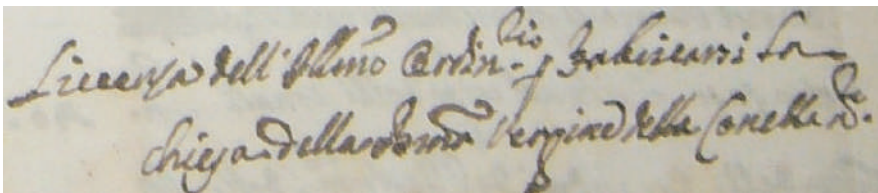 Licenza dell'Illmo Ordin.rio p fabricarsi la
chiesa della Beatma Vergine delle Conelle